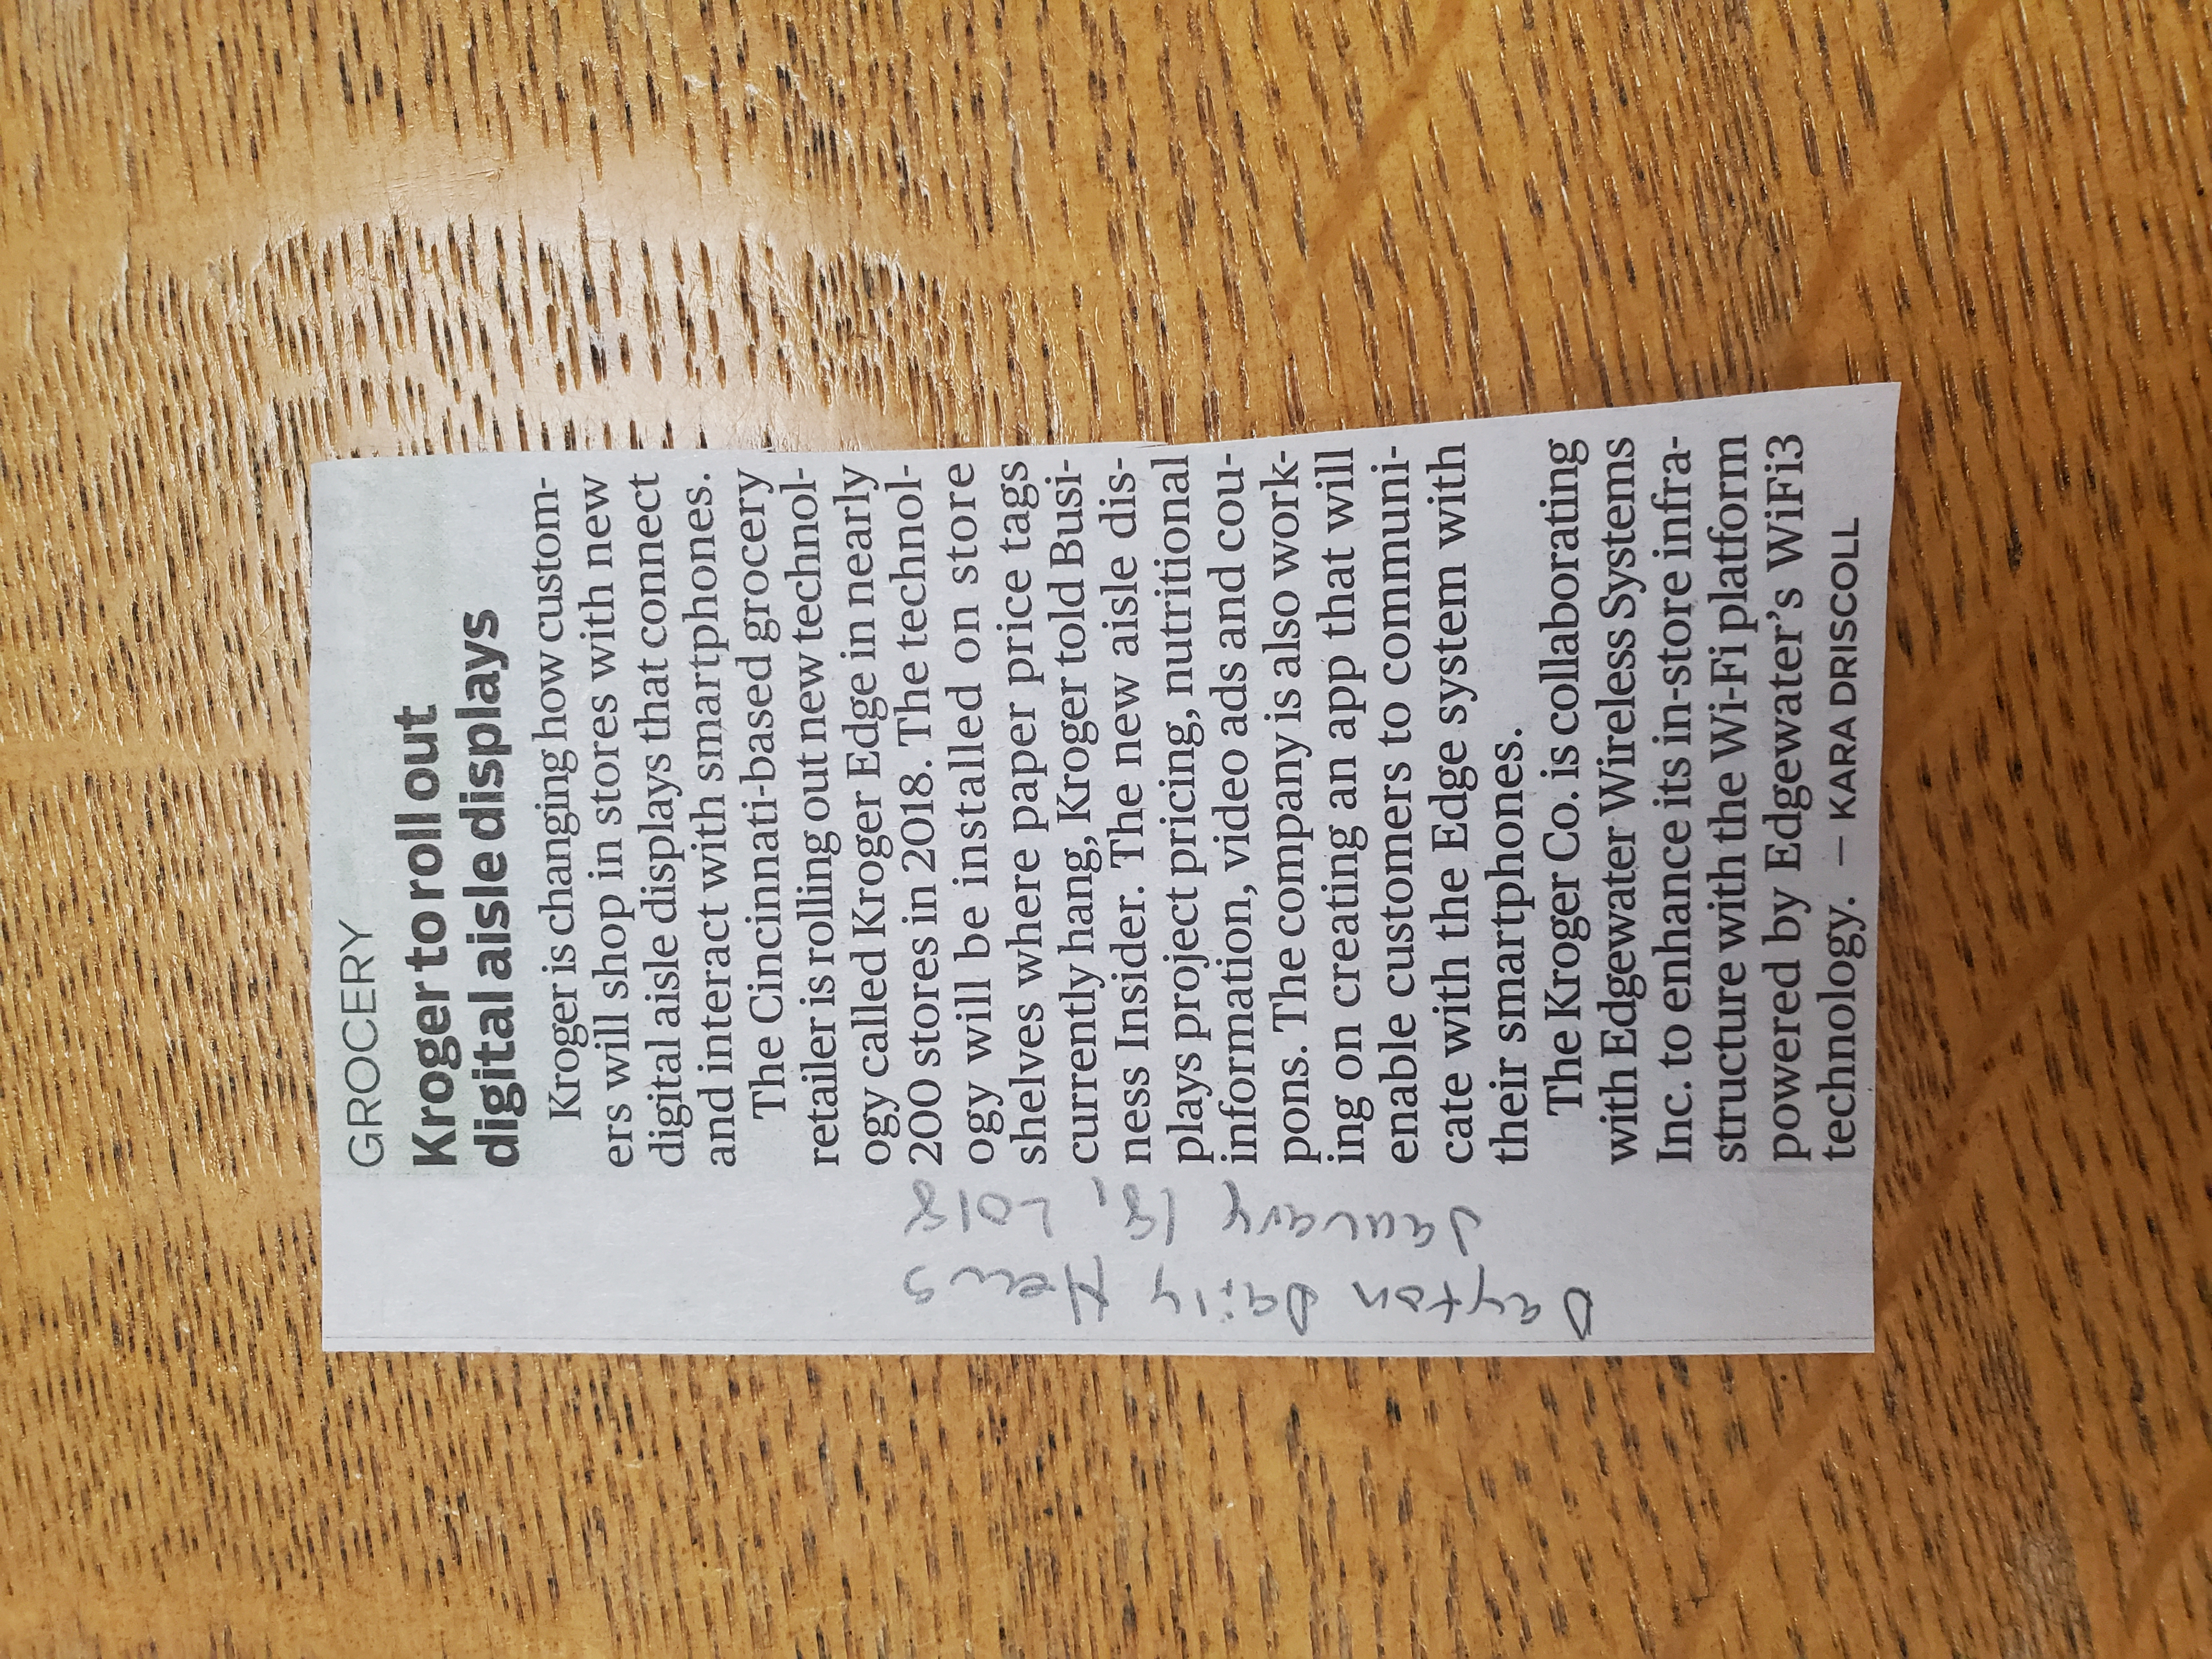 GROCERY
Kroger to roll out
digital aisle displays
Kroger is changing how custom-
ers will shop in stores with new
digital aisle displays that connect
and interact with smartphones.
The Cincinnati-based grocery
retailer is rolling out new technol-
ogy called Kroger Edge in nearly
200 stores in 2018. The technol-
ogy will be installed on store
shelves where paper price tags
currently hang, Kroger told Busi-
ness Insider. The new aisle dis-
plays project pricing, nutritional
information, video ads and cou-
pons. The company is also work-
ing on creating an app that will
enable customers to communi-
cate with the Edge system with
their smartphones.
The Kroger Co. is collaborating
with Edgewater Wireless Systems
Inc. to enhance its in-store infra-
structure with the Wi-Fi platform
powered by Edgewater's WiFi3
technology. — KARA DRISCOLL
Dayton Daily News
January 18, 2018